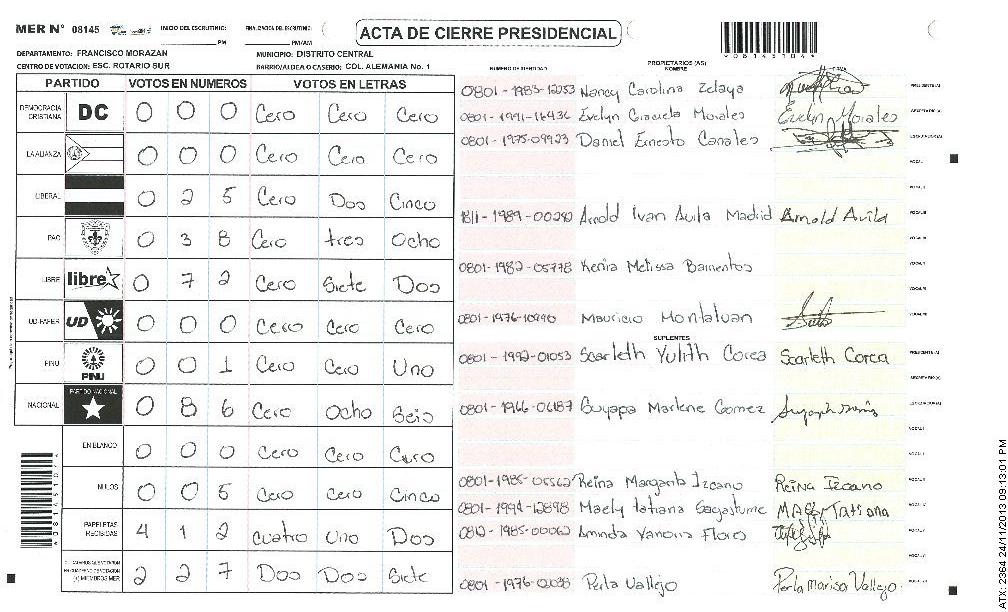 MER Nº 08145 INICIO DEL ESCRUTINIO: PM FINALIZACION DEL ESCRUTINIO: PM/AM
ACTA DE CIERRE PRESIDENCIAL
DEPARTAMENTO: FRANCISCO MORAZAN MUNICIPIO: DISTRITO CENTRAL
CENTRO DE VOTACION: ESC. ROTARIO SUR BARRIO/ALDEA O CASERIO: COL. ALEMANIA No. 1
PARTIDO VOTOS EN NUMEROS VOTOS EN LETRAS
DEMOCRACIA CRISTIANA DC 0 0 0 Cero Cero Cero
LA ALIANZA 0 0 0 Cero Cero Cero
LIBERAL 0 2 5 Cero Dos Cinco
PAC 0 3 8 Cero tres Ocho
LIBRE libre 0 7 2 Cero Siete Dos
UD-FAPER UD 0 0 0 Cero Cero Cero
PINU PINU 0 0 1 Cero Cero Uno
NACIONAL PARTIDO NACIONAL 0 8 6 Cero Ocho Seis
EN BLANCO 0 0 0 Cero Cero Cero
NULOS 0 0 5 Cero cero Cinco
PAPELETAS RECIBIDAS 4 1 2 cuatro Uno Dos
(+) MIEMBROS MER 2 2 7 Dos Dos Siete
NUMERO DE IDENTIDAD PROPIETARIOS (AS) NOMBRE FIRMA
0801-1983-12053 Nancy Carolina Zelaya PRESIDENTE (A)
0801-1991-16436 Evelyn Graciela Morales Evelyn Morales SECRETARIO (A)
0801-1975-09923 Daniel Ernesto Canales
1811-1989-00280 Arnold Ivan Avila Madrid Arnold Avila
0801-1982-05778 Kenia Melissa Barrientos
0801-1976-10990 Mauricio Montalvan
SUPLENTES
0801-1992-01053 Scarleth Yulith Corea Scarleth Corea PRESIDENTE (A)
SECRETARIO (A)
0801-1966-06187 Guyapa Marlene Gomez
0801-1985-05562 Reina Margarita Izcano Reina Izcano
0801-1994-12898 Maely tatiana Sagastume MAELY Tatiana
0812-1985-00062 Aminda Yanoria Flores
0801-1976-02038 Perla Vallejo Perla Marisa Vallejo
ATX: 2364 24/11/2013 09:13:01 PM